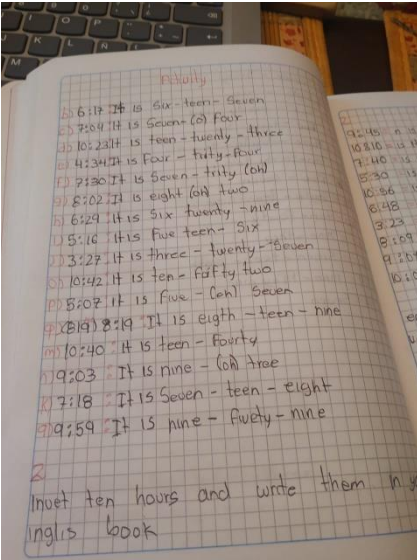 Activity
b) 6:17 It is Six-teen-Seven
c) 7:04 It is Seven-(o) Four
d) 10:23 It is teen-twenty-three
e) 4:34 It is Four-trity-Four
f) 7:30 It is Seven-trity (oh)
g) 8:02: It is eight (oh) two
h) 6:29: It is Six twenty-nine
i) 5:16 It is Five teen-Six
j) 3:27 It is three-twenty-Seven
10:42 It is ten-fofty two
p) 5:07 It is Five-(oh) Seven
(819) 8:19: It is eigth-teen-nine
m) 10:40: It is teen-Fourty
9:03: It is nine-(oh) trae
k) 7:18: It is Seven-teen-eight
9:59: It is nine-fivety-nine
2
Invet ten hours and write them in y
inglis book
2
9:45
10:10
7:40 is
5:30 is
10:56
6:48
3:23
8:09